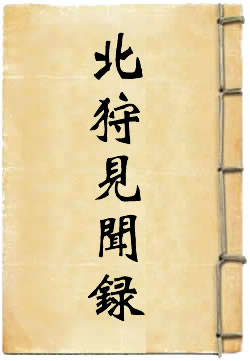 北狩見聞録